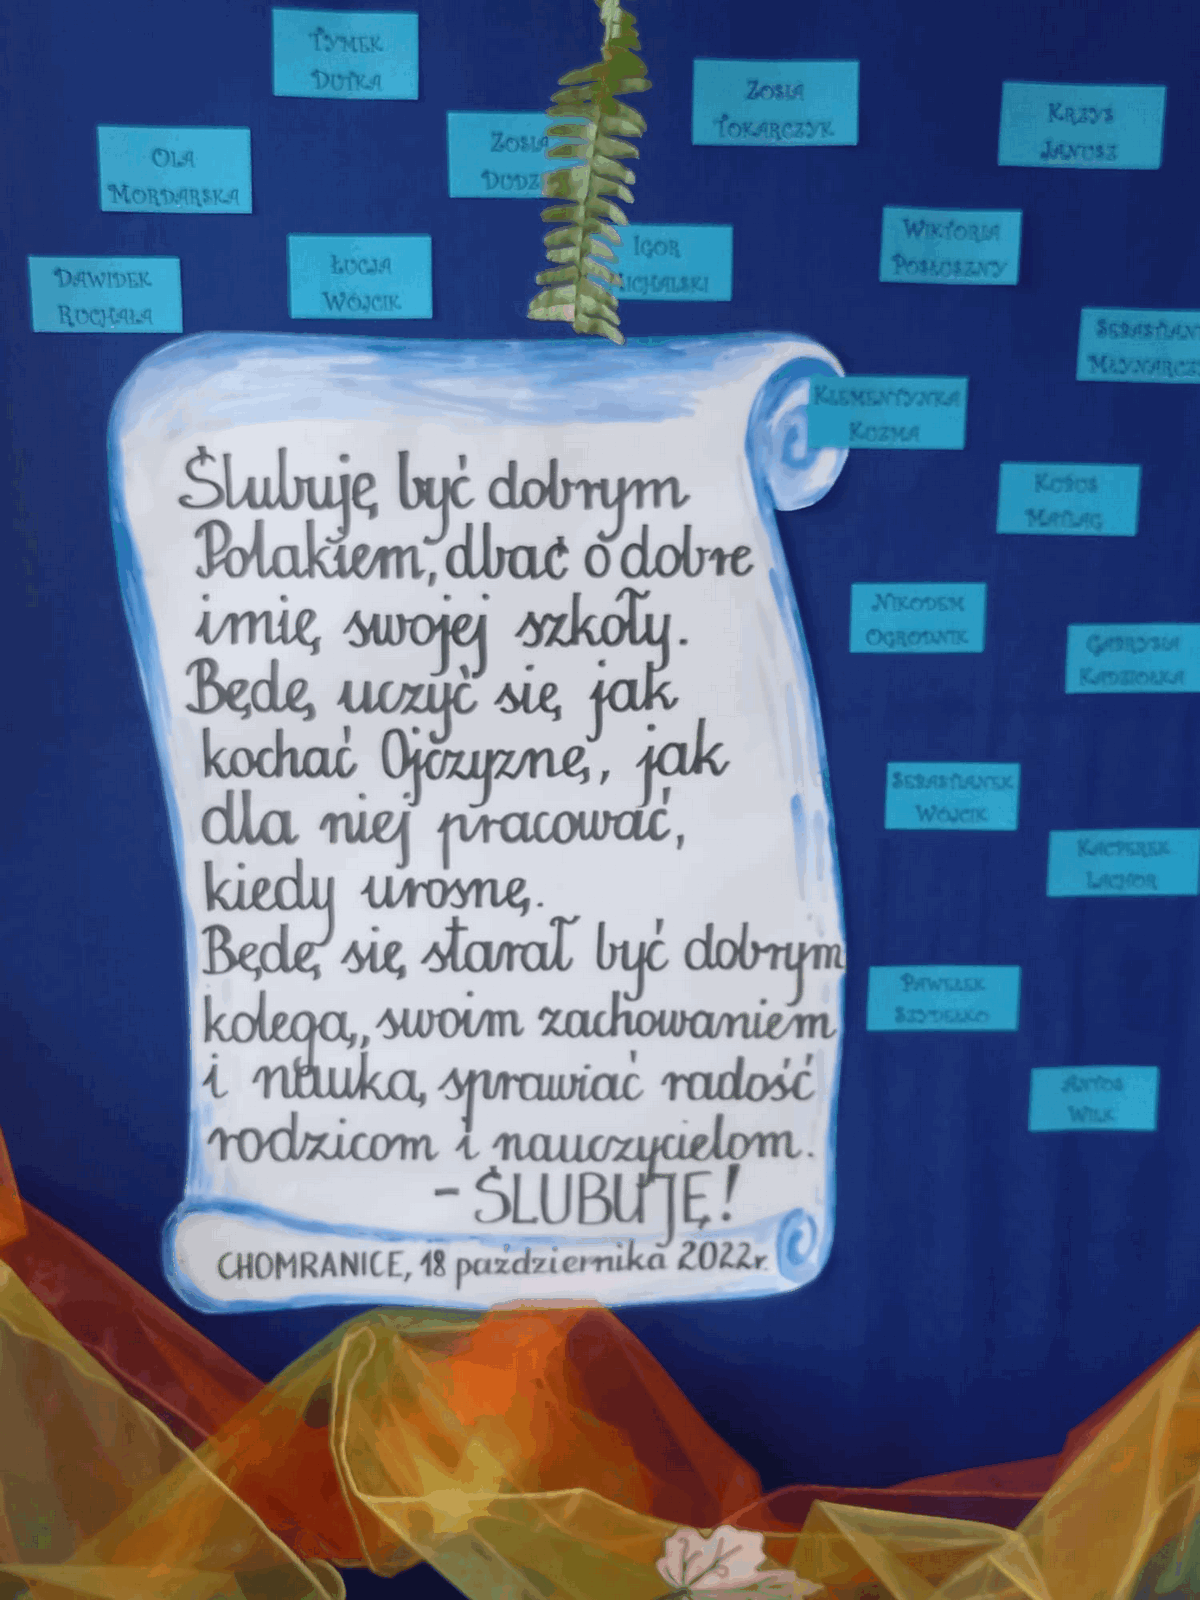 TYMEK
DUTKA
ZOSIA
TOKARCZYK
KRZYŚ
JANUSZ
OLA
MORDARSKA
ZOSIA
DUDZ
IGOR
MICHALSKI
WIKTORIA
POSŁUSZNY
DAWIDEK
RUCHAŁA
ŁUCJA
WÓJCIK
SEBASTIAN
MŁYNARCZ
KLEMENTYNKA
KUZMA
Ślubuję być dobrym
Polakiem, dbać o dobre
imię swojej szkoły.
Będę uczyć się jak
kochać Ojczyznę, jak
dla niej pracować,
kiedy urosnę.
Będę się starał być dobrym
kolegą, swoim zachowaniem
i nauką sprawiać radość
rodzicom i nauczycielom.
- ŚLUBUJĘ!
CHOMRANICE, 18 października 2022r.
NIKODEM
OGRODNIK
GABRYSIA
KADZIOŁKA
SEBASTIANEK
WÓJCIK
KACPEREK
PAWEŁEK
SZYDEŁKO
ANTOŚ
WILK